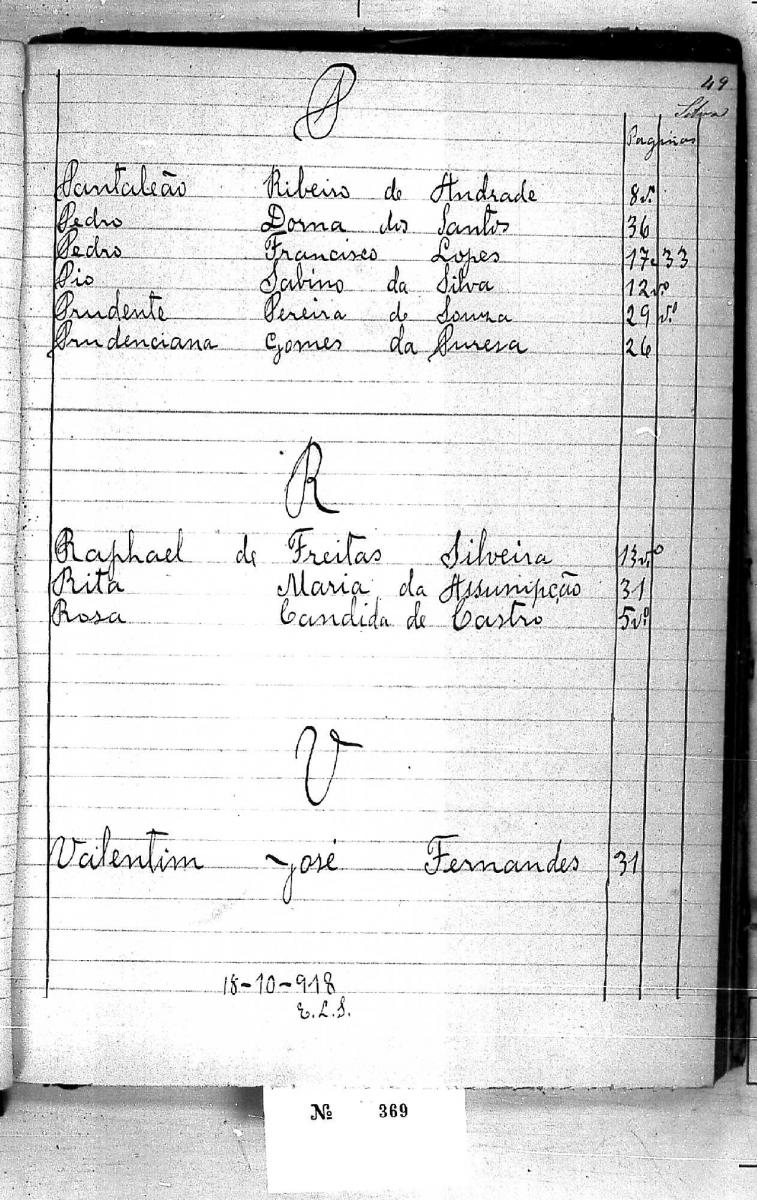 49
Silva
P
Paginas
Pantaleão Ribeiro de Andrade 8vº
Pedro Dorna dos Santos 36
Pedro Francisco Lopes 17 e 33
Pio Sabino da Silva 12vº
Prudente Pereira de Souza 29vº
Prudenciana Gomes da Puresa 26
R
Raphael de Freitas Silveira 13vº
Rita Maria da Assumpção 31
Rosa Candida de Castro 5vº
V
Valentim José Fernandes 31
18-10-918
E.L.S.
№ 369